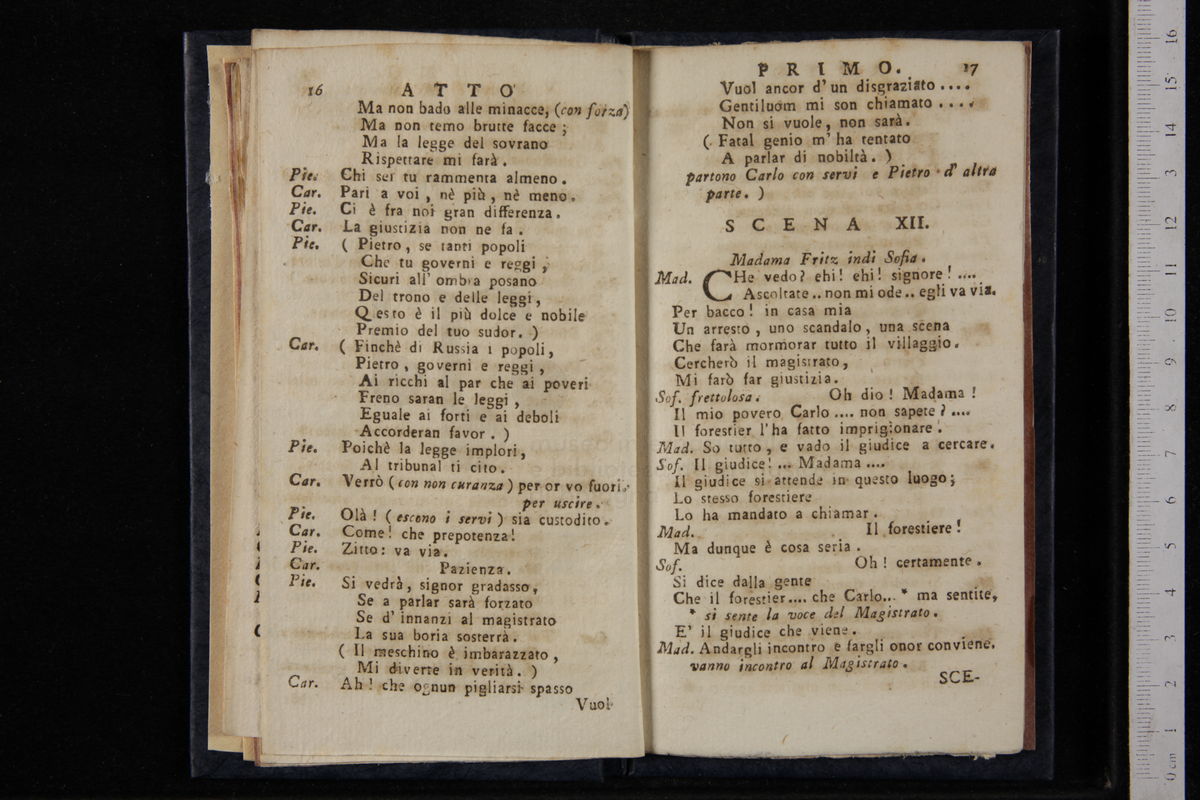 16 ATTO
Ma non bado alle minacce, (con forza)
Ma non temo brutte facce ;
Ma la legge del sovrano
Rispettare mi farà .
Pie. Chi sei tu rammenta almeno .
Car. Pari a voi , nè più , nè meno .
Pie. Ci è fra noi gran differenza .
Car. La giustizia non ne fa .
Pie. ( Pietro , se tanti popoli
Che tu governi e reggi ,
Sicuri all' ombra posano
Del trono e delle leggi ,
Questo è il più dolce e nobile
Premio del tuo sudor . )
Car. ( Finchè di Russia i popoli,
Pietro , governi e reggi ,
Ai ricchi al par che ai poveri
Freno saran le leggi ,
Eguale ai forti e ai deboli
Accorderan favor . )
Pie. Poichè la legge implori,
Al tribunal ti cito .
Car. Verrò ( con non curanza ) per or vo fuori .
per uscire .
Pie. Olà ! ( escono i servi ) sia custodito .
Car. Come ! che prepotenza !
Pie. Zitto : va via .
Car. Pazienza .
Pie. Si vedrà , signor gradasso ,
Se a parlar sarà forzato
Se d' innanzi al magistrato
La sua boria sosterrà .
( Il meschino è imbarazzato ,
Mi diverte in verità . )
Car. Ah ! che ognun pigliarsi spasso
Vuol
PRIMO. 17
Vuol ancor d' un disgraziato ....
Gentiluom mi son chiamato ....
Non si vuole , non sarà .
( Fatal genio m' ha tentato
A parlar di nobiltà . )
partono Carlo con servi e Pietro d' altra
parte . )
SCENA XII.
Madama Fritz indi Sofia .
Mad. CHe vedo ? ehi ! ehi ! signore ! ....
Ascoltate .. non mi ode .. egli va via.
Per bacco ! in casa mia
Un arresto , uno scandalo , una scena
Che farà mormorar tutto il villaggio .
Cercherò il magistrato ,
Mi farò far giustizia .
Sof. frettolosa . Oh dio ! Madama !
Il mio povero Carlo .... non sapete ? ....
Il forestier l' ha fatto imprigionare .
Mad. So tutto , e vado il giudice a cercare .
Sof. Il giudice ! ... Madama ....
Il giudice si attende in questo luogo ;
Lo stesso forestiere
Lo ha mandato a chiamar .
Mad. Il forestiere !
Ma dunque è cosa seria .
Sof. Oh ! certamente .
Si dice dalla gente
Che il forestier .... che Carlo... * ma sentite,
* si sente la voce del Magistrato .
E' il giudice che viene .
Mad. Andargli incontro e fargli onor conviene.
vanno incontro al Magistrato .
SCE-
0 cm 1 2 3 4 5 6 7 8 9 10 11 12 13 14 15 16